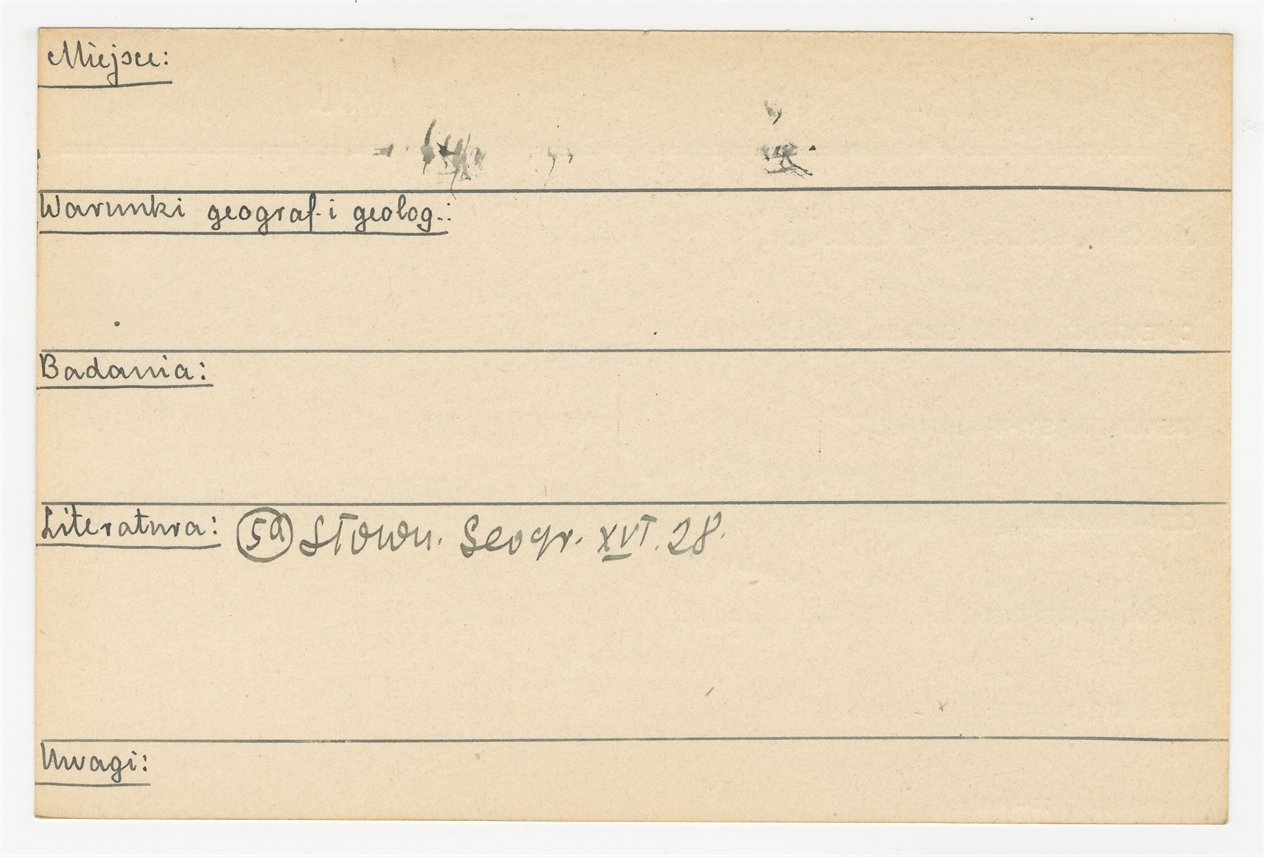 Miejsce:
Warunki geograf. i geolog.:
Badania:
Literatura: 5a Słown. Geogr. XVI. 28.
Uwagi: